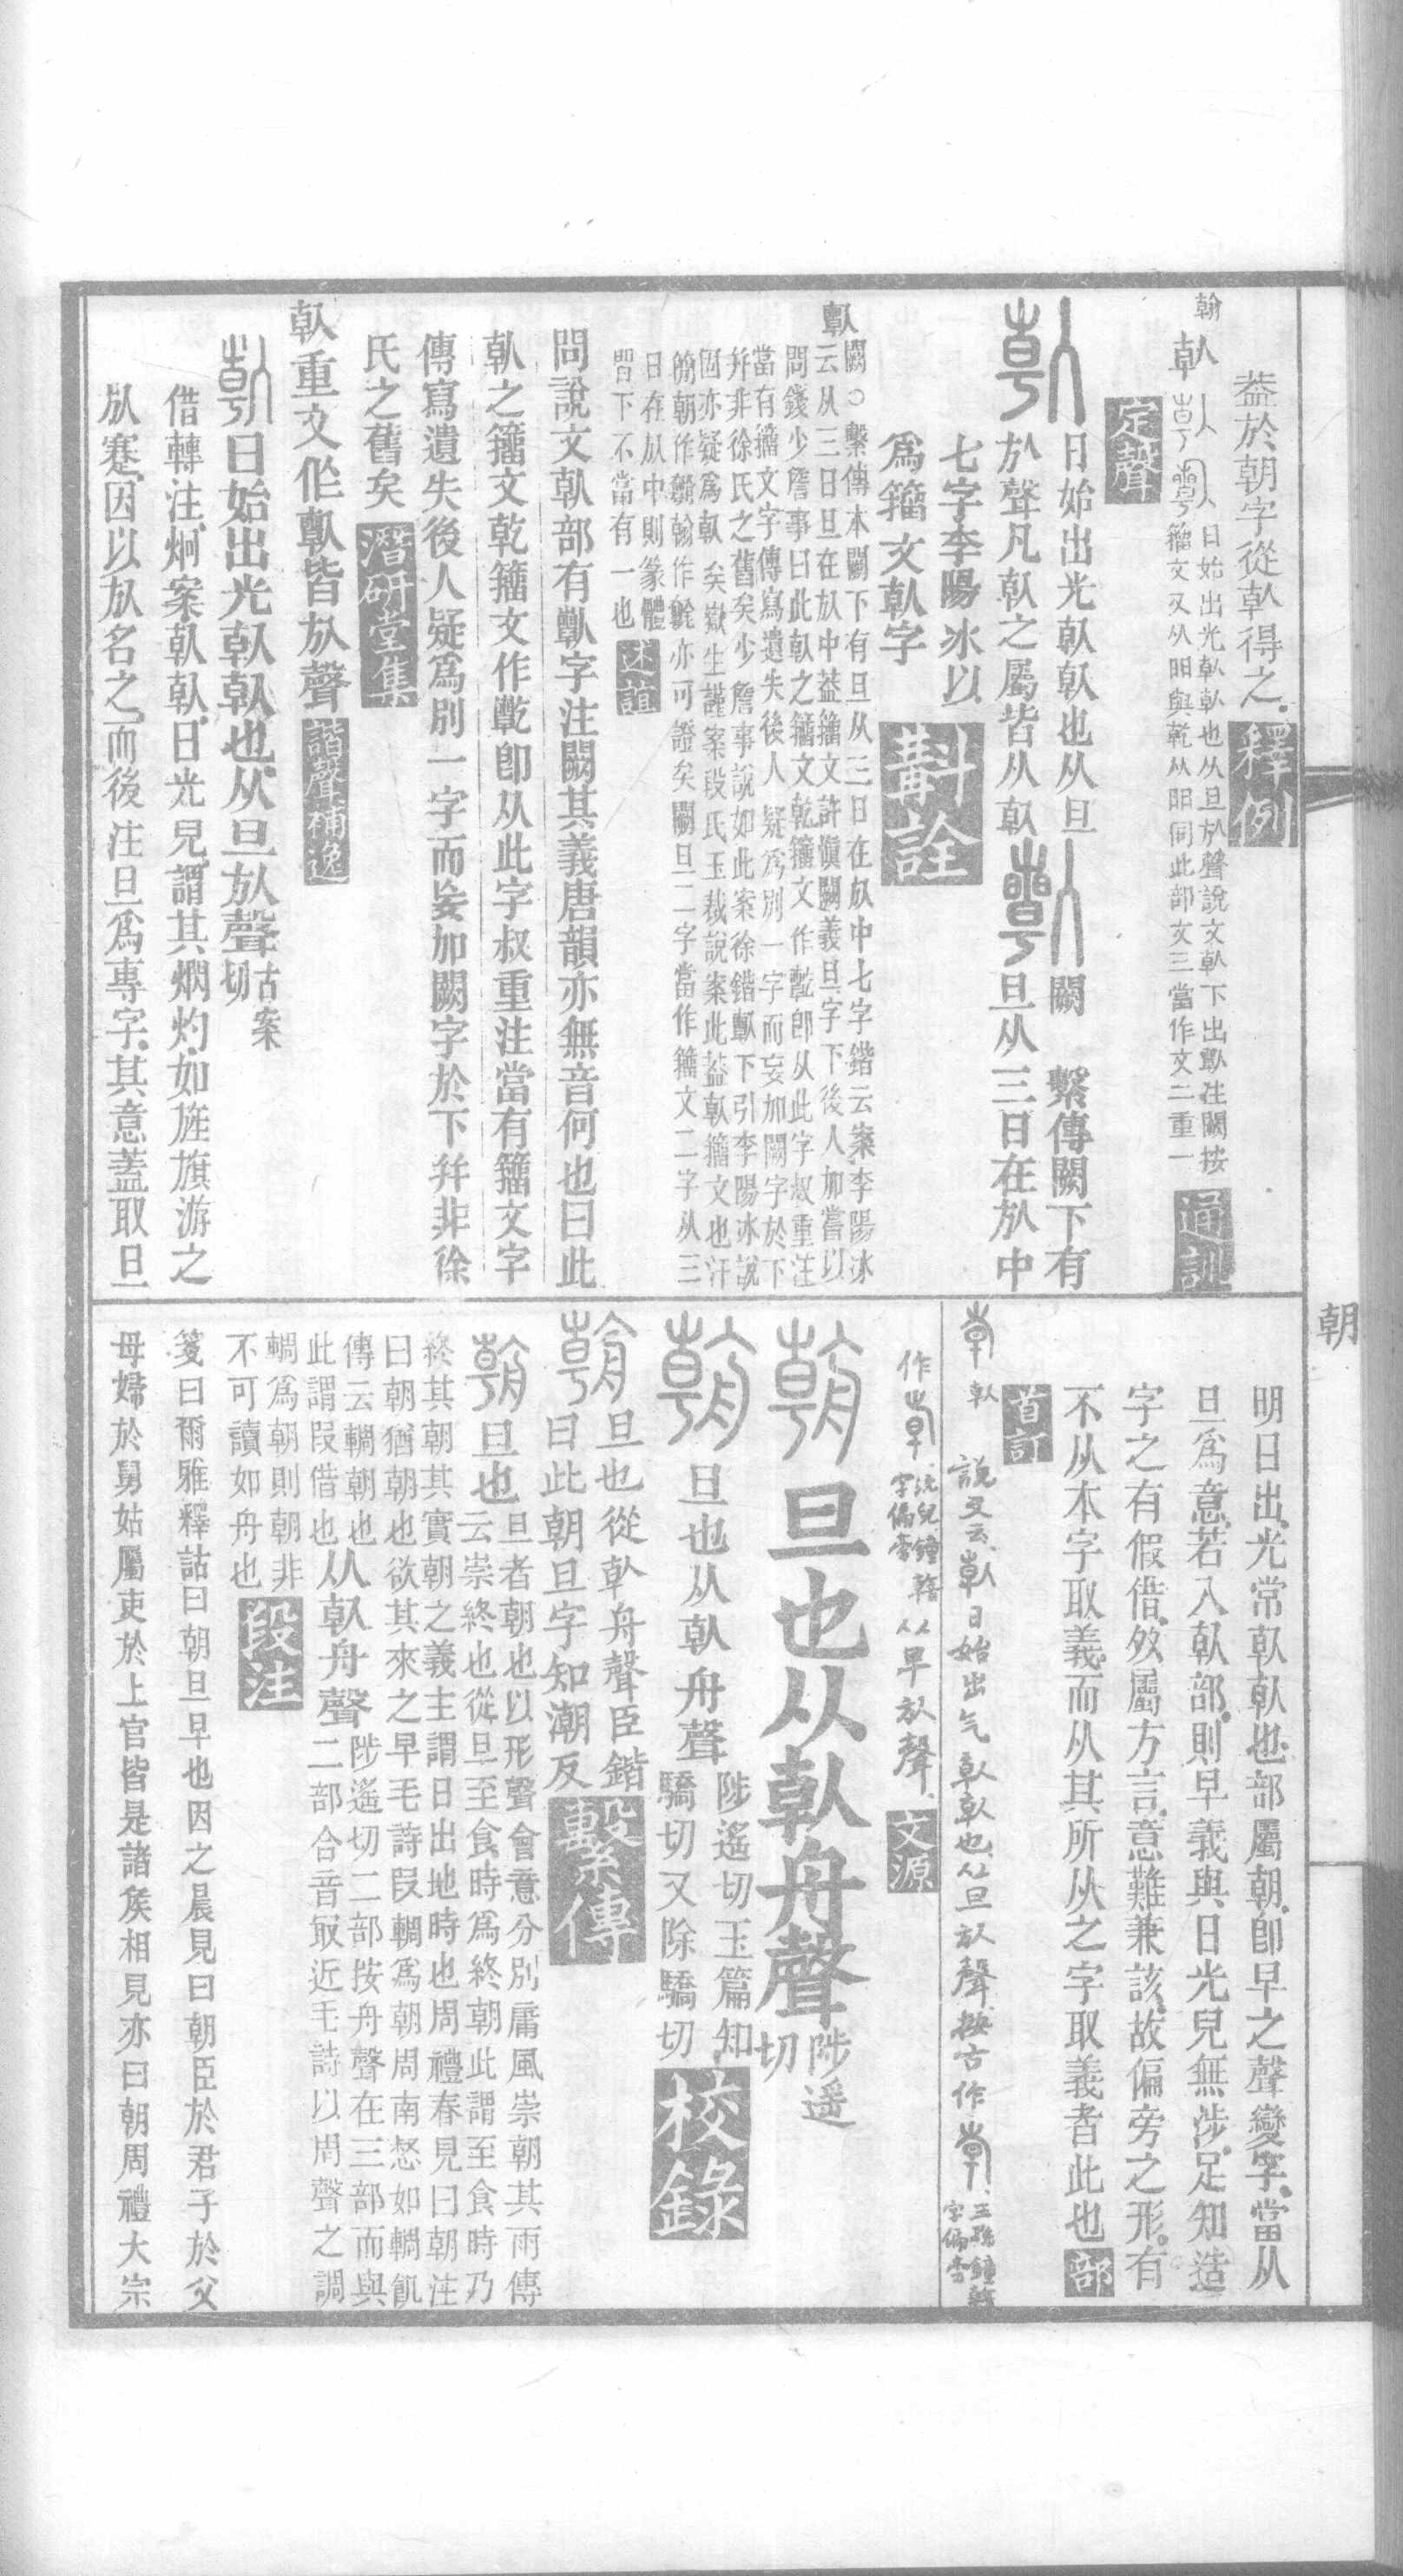 葢於朝字從倝得之釋例
翰
倝日始出光倝倝也从旦㫃聲說文倝下出𠦝注闕按
籒文又从㫃與乾从㫃同此部文三當作文二重一通訓
定聲
日始出光倝倝也从旦
㫃聲凡倝之屬皆从倝
闕 繫傳闕下有
旦从三日在㫃中
七字李陽冰以
爲籒文倝字
斠詮
闕○繫傳本闕下有旦从三日在㫃中七字鍇云案李陽冰
云从三日旦在㫃中葢籒文許愼闕義旦字下後人加嘗以
問錢少詹事曰此倝之籒文乾籒文作𠦝卽从此字叔重注
當有籒文字傳寫遺失後人疑爲別一字而妄加闕字於下
幷非徐氏之舊矣少詹事說如此案徐鍇下引李陽冰說
固亦疑爲倝矣嶽生謹案段氏玉裁說案此葢倝籒文也汗
亦可證矣闕旦二字當作籒文二字从三
日在㫃中則篆體
㫗下不當有一也述誼
問說文倝部有字注闕其義唐韻亦無音何也曰此
倝之籒文乾籒文作卽从此字叔重注當有籒文字
傳寫遺失後人疑爲別一字而妄加闕字於下幷非徐
氏之舊矣潛硏堂集
倝重文作皆㫃聲諧聲補逸
日始出光倝倝也从旦㫃聲古案切
借轉注炯案倝倝日光皃謂其烱灼如旌旗游之
㫃蹇因以㫃名之而後注旦爲專字其意蓋取旦
朝
明日出光常倝倝也部屬朝卽早之聲變字當从
旦爲意若入倝部則早義與日光皃無涉足知造
字之有假借效屬方言意難兼該故偏旁之形有
不从本字取義而从其所从之字取義者此也部
首訂
倝 說文云倝日始出气倝倝也从旦㫃聲按古作王孫鐘字偏旁
作沇兒鐘字偏旁从早㫃聲文源
旦也从倝舟聲陟遥切
旦也从倝舟聲陟遙切玉篇知驕切又除驕切校錄
旦也從倝舟聲臣鍇
曰此朝旦字知潮反繫傳
旦也旦者朝也以形聲會意分別庸風崇朝其雨傳
云崇終也從旦至食時爲終朝此謂至食時乃
終其朝其實朝之義主謂日出地時也周禮春見曰朝注
曰朝猶朝也欲其來之早毛詩叚輖爲朝周南惄如輖飢
傳云輖朝也从倝舟聲陟遙切二部按舟聲在三部而與
此謂叚借也二部合音最近毛詩以周聲之調
輖爲朝則朝非
不可讀如舟也段注
箋曰爾雅釋詁曰朝旦早也因之晨見曰朝臣於君子於父
母婦於舅姑屬吏於上官皆是諸矦相見亦曰朝周禮大宗